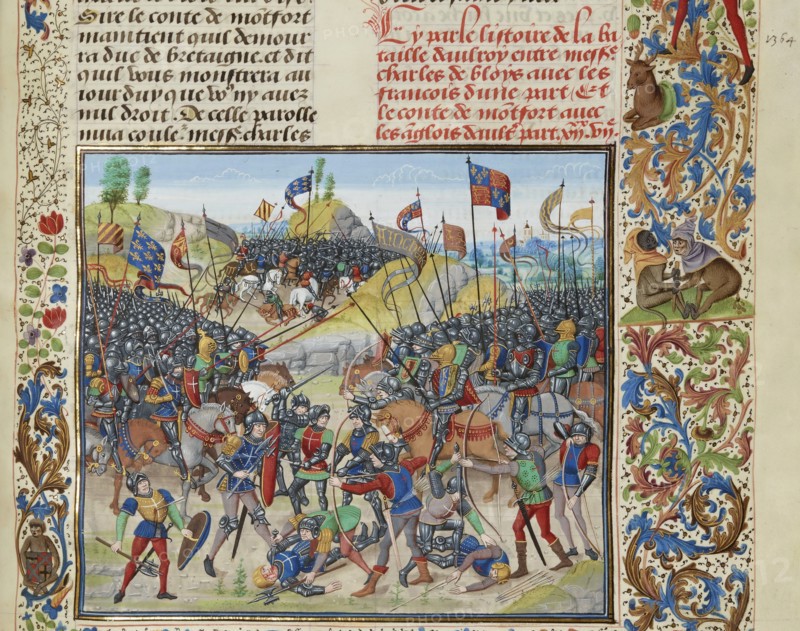 Sire le conte de mõtfort
maintient quil demour
ra duc de bretaigne. et dit
quil vous monstrera au
iourduy que voꝰ ny auez
nul droit. De celle parolle
mua coulẽ messe charles
Cy parle listoire de la ba
taille daulroy entre messe
charles de bloys auec les
francois dune part / Et
le conte de mõtfort auec
les ãglois dault᷑ part. xij. vijͯ
1364